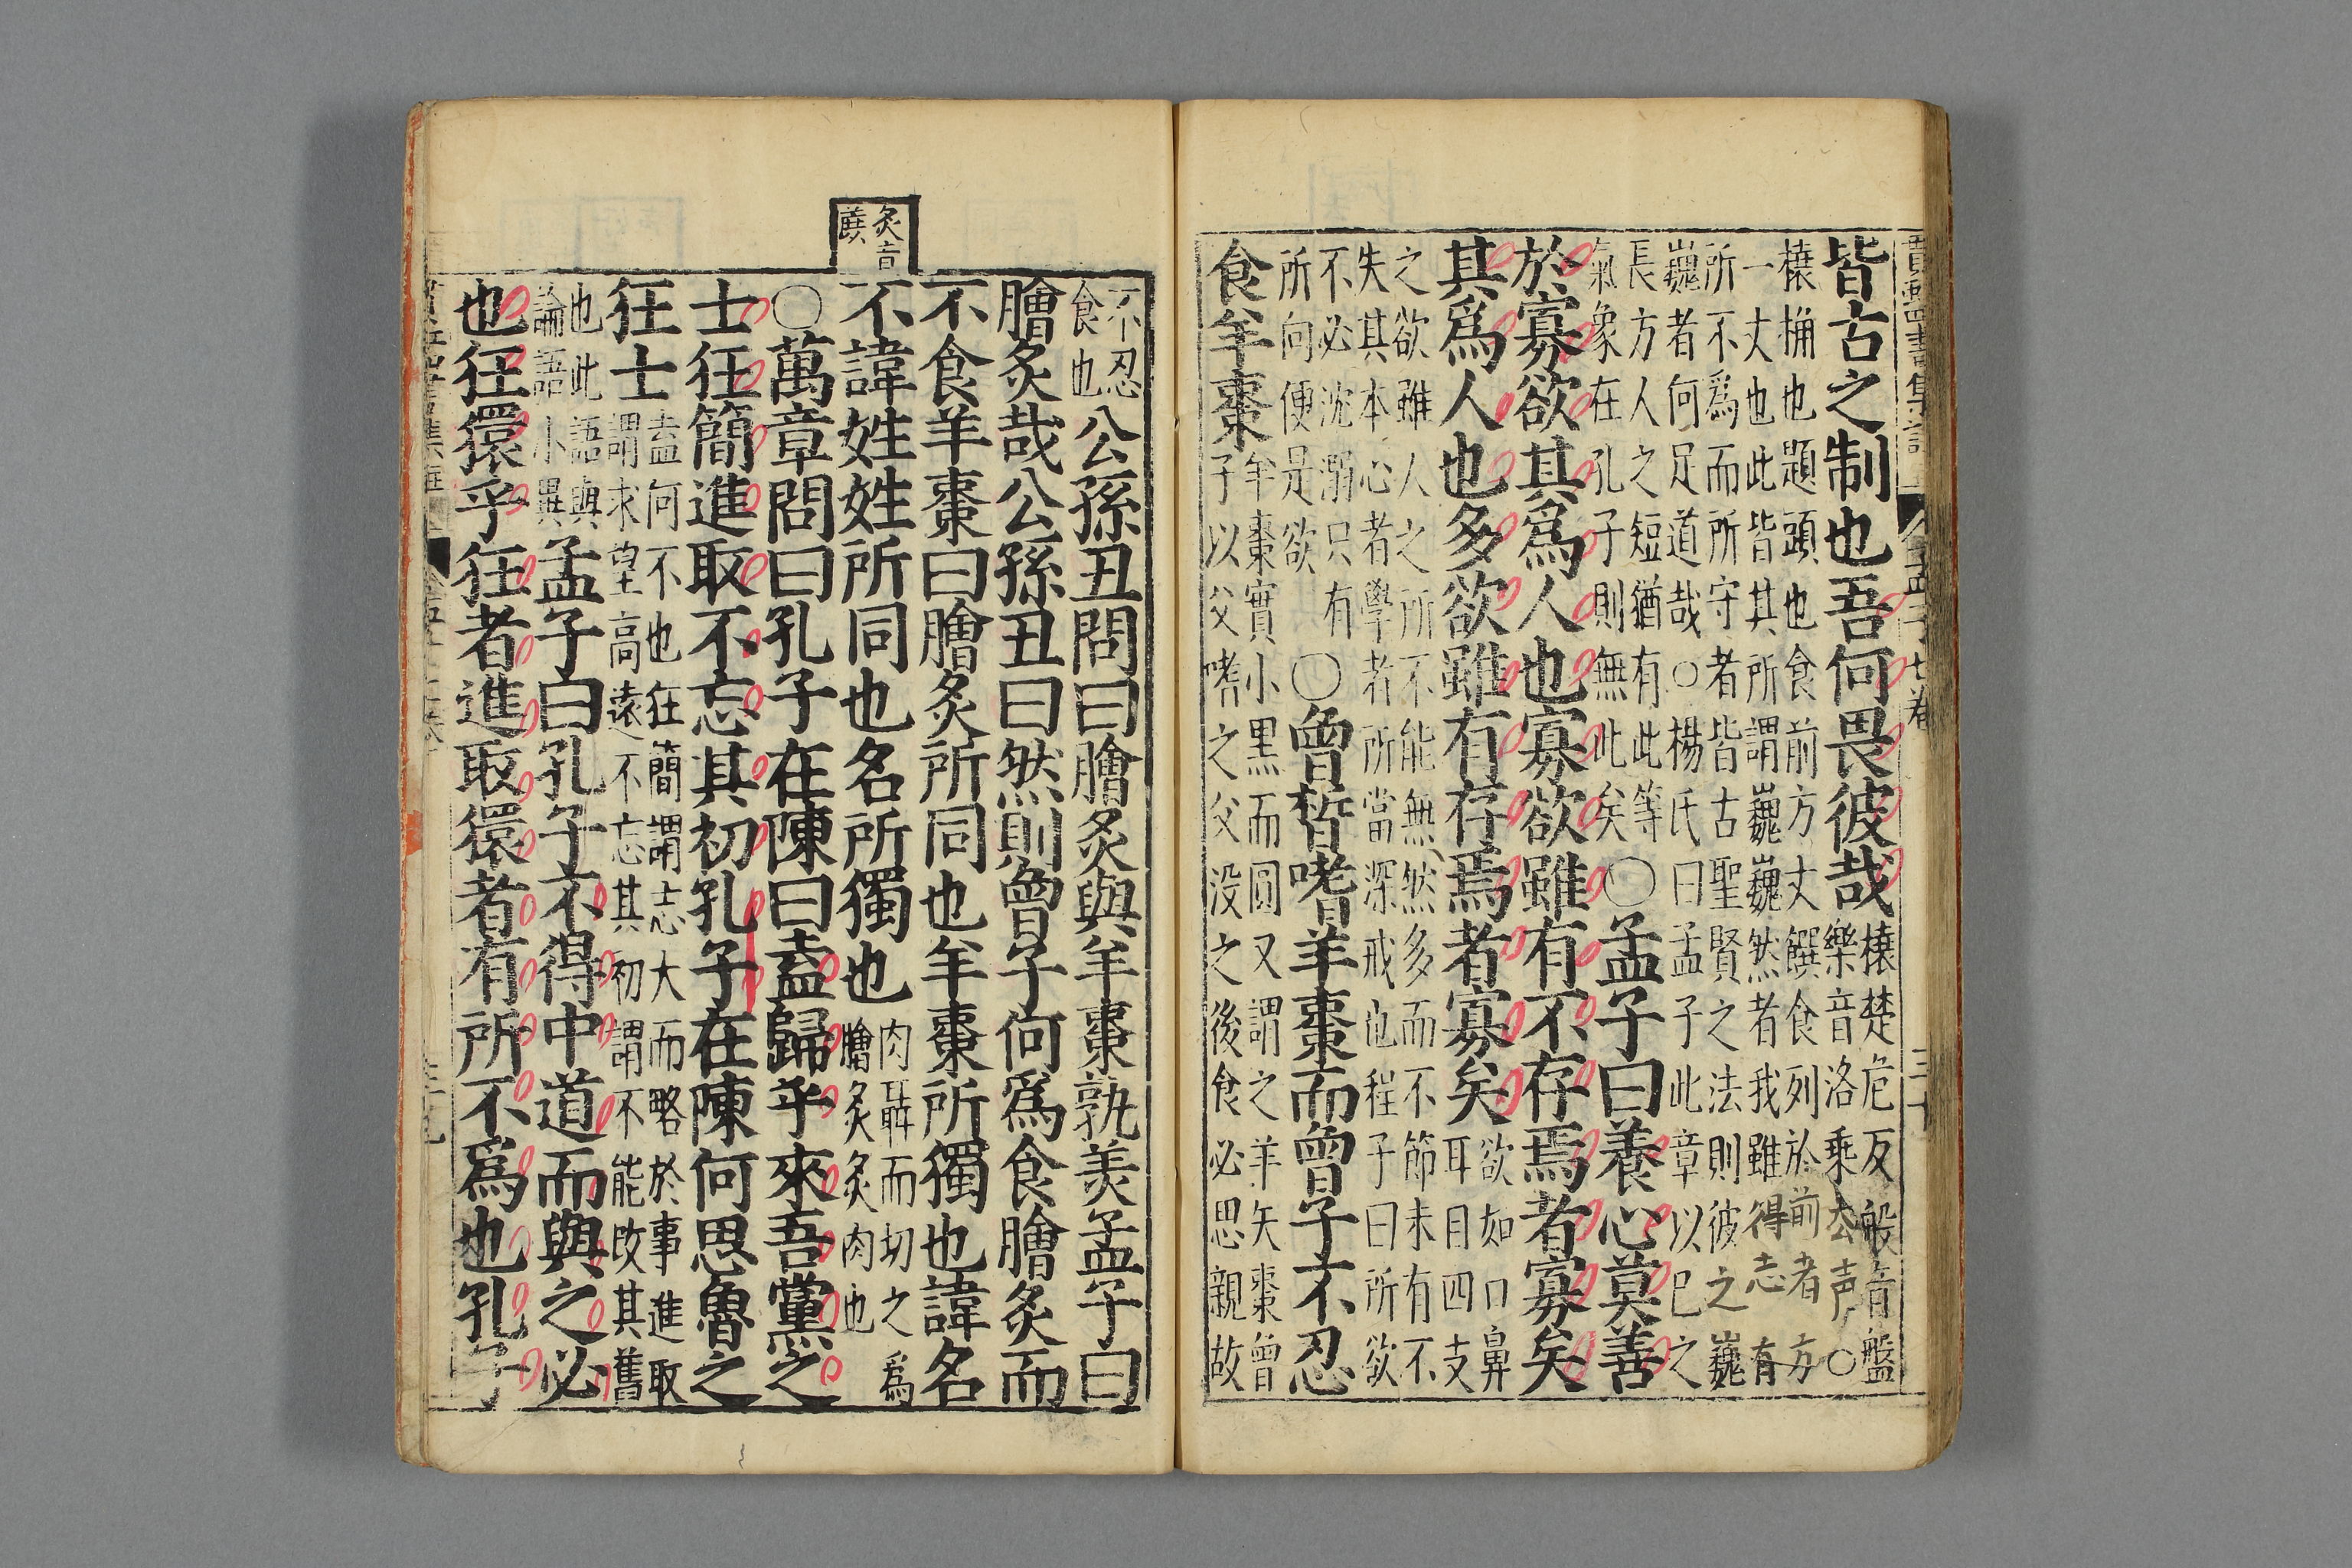 皆古之制也吾何畏彼哉
榱楚危反般音盤○
樂音洛乘去声
榱桷也題頭也食前方丈饌食列於前者方
一丈也此皆其所謂巍巍然者我雖得志有
所不爲而所守者皆古聖賢之法則彼之巍
巍者何足道哉○楊氏曰孟子此章以巳之
長方人之短猶有此等
氣象在孔子則無此矣
○孟子曰養心莫善
於寡欲其爲人也寡欲雖有不存焉者寡矣
其爲人也多欲雖有存焉者寡矣
欲如口鼻
耳目四支
之欲雖人之所不能無然多而不節未有不
失其本心者學者所當深戒也程子曰所欲
不必沈溺只有
所向便是欲
○曾晳嗜羊棗而曾子不忍
食羊棗
羊棗實小黑而圓又謂之羊矢棗曾
子以父嗜之父没之後食必思親故
不忍
食也
公孫丑問曰膾炙與羊棗孰美孟子曰
膾炙哉公孫丑曰然則曾子何爲食膾炙而
不食羊棗曰膾炙所同也羊棗所獨也諱名
炙音
蔗
不諱姓姓所同也名所獨也
肉聶而切之爲
膾炙炙肉也
○萬章問曰孔子在陳曰盍歸乎來吾黨之
士狂簡進取不忘其初孔子在陳何思魯之
狂士
盍何不也狂簡謂志大而略於事進取
謂求望高遠不忘其初謂不能改其舊
也此語與
論語小異
孟子曰孔子不得中道而與之必
也狂獧乎狂者進取獧者有所不爲也孔子